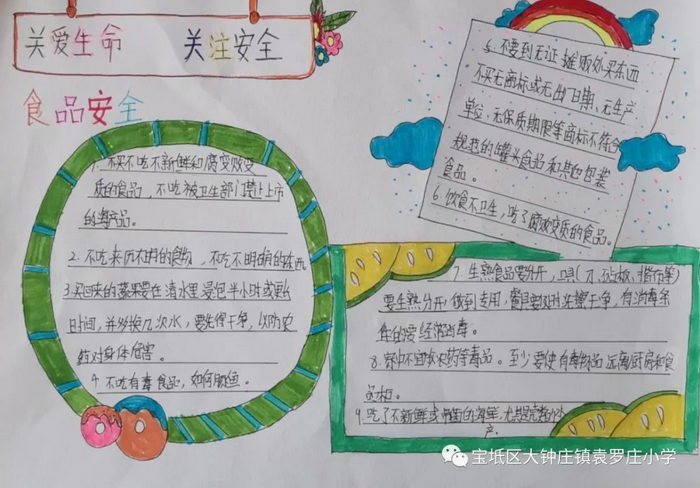 关爱生命 关注安全
食品安全
1. 不买不吃不新鲜和腐变败变
质的食品，不吃被卫生部门禁止上市
的海产品。
2. 不吃来历不明的食物，不吃不明确的东西
3.买回来的蔬果要在清水里浸包半小时或更长
时间，并多换几次水，要洗得干净，以防农
药对身体危害。
4. 不吃有毒食品，如河豚鱼。
5. 不要到无证摊贩处买东西
不买无商标或无出厂日期、无生产
单位、无保质期限等商标不符合
规范的罐头食品和其包包装
食品。
6. 饮食不卫生，吃了腐败变质的食品。
7. 生熟食品要分开，
要生熟分开，做到专用，餐具要及时洗擦干净，有消毒条
件的要经常消毒。
8. 家中不宜放农药等毒品。至少要使有毒物品远离厨房和食
品柜。
9.吃了不新鲜或
产。
宝坻区大钟庄镇袁罗庄小学